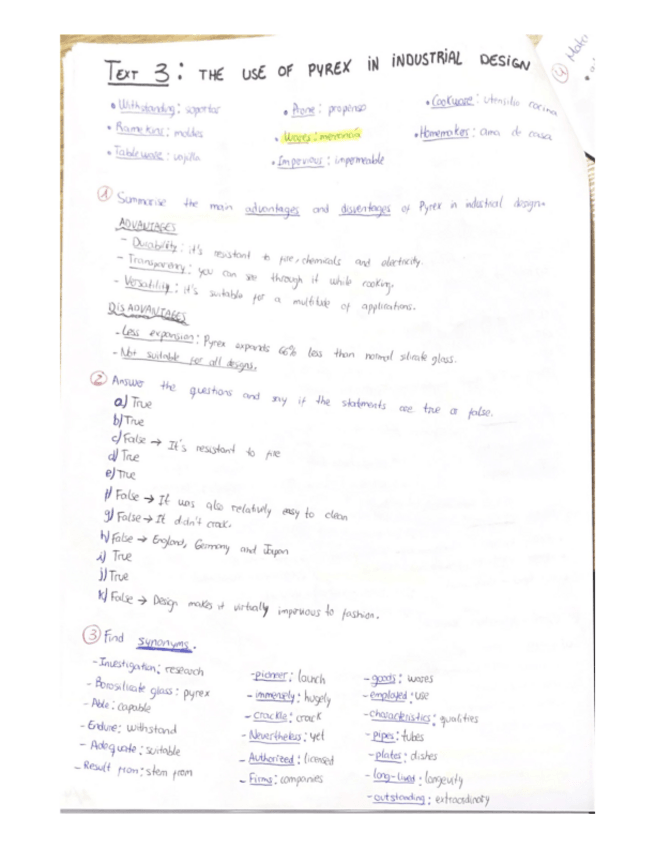 TEXT 3: THE USE OF PYREX IN INDUSTRIAL DESIGN
• Withstanding: soportar
• Prone: propenso
• Cookware: utensilio cocina
• Ramekins: moldes
• Wares: mercancía
• Homemaker: ama de casa
• Tableware: vajilla
• Impervious: impermeable
① Summarise the main advantages and disventages of Pyrex in industrial design.
ADVANTAGES
- Durability: it's resistant to fire, chemicals and electricity.
- Transparency: you can see through it while cooking.
- Versatility: it's suitable for a multitude of applications.
DISADVANTAGES
- Less expansion: Pyrex expands 66% less than normal silicate glass.
- Not suitable for all designs.
② Answer the questions and say if the statments are true or false.
a) True
b) True
c) False → It's resistant to fire
d) True
e) True
f) False → It was also relatively easy to clean
g) False → It didn't crack.
h) False → England, Germany and Japan
i) True
j) True
k) False → Design makes it virtually impervious to fashion.
③ Find synonyms.
- Investigation: research
- Borosilicate glass: pyrex
- Able: capable
- Endure: withstand
- Adequate: suitable
- Result from: stem from
- pioneer: launch
- immensely: hugely
- crackle: crack
- Nevertheless: yet
- Authorized: licensed
- Firms: companies
- goods: wares
- employed: use
- characteristics: qualities
- pipes: tubes
- plates: dishes
- long-lived: longevity
- outstanding: extraordinary
④